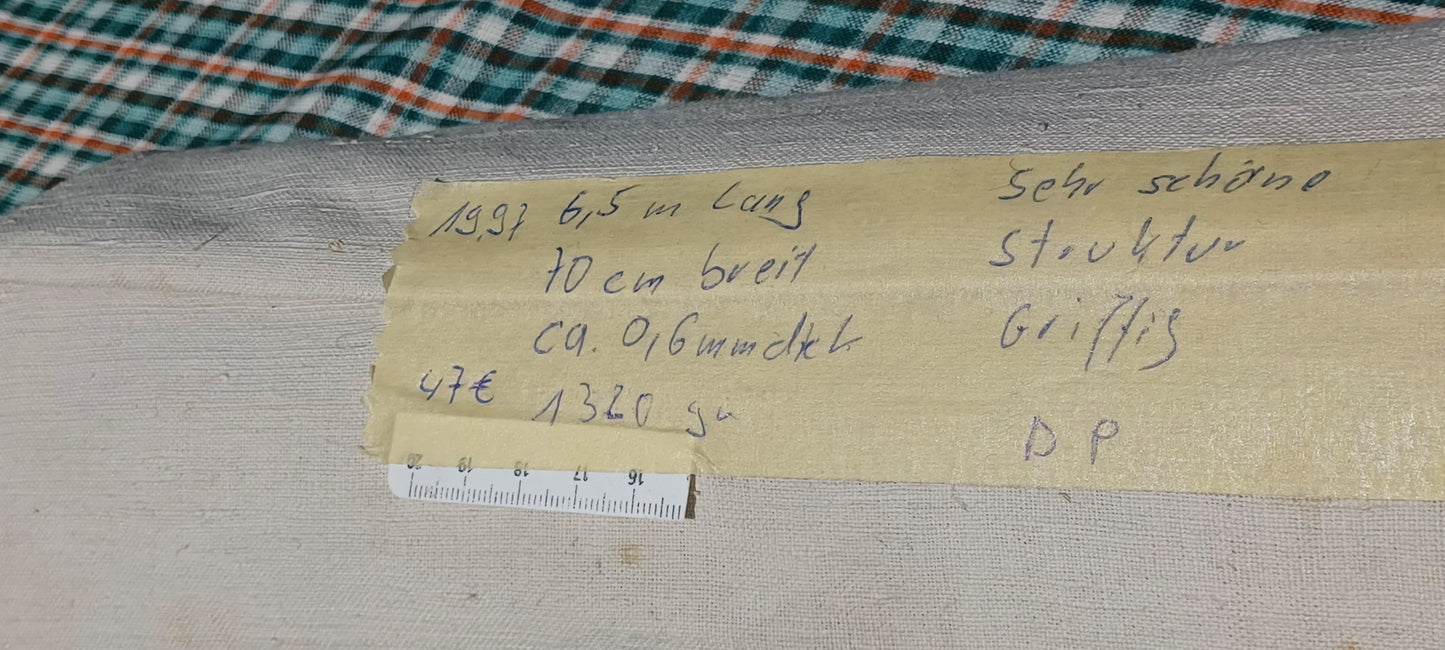 19,97 6,5 m Lang
70 cm breit
ca. 0,6mm dick
47€ 1320 gr
Sehr schöne
Struktur
Griffig
D P
20 19 18 17 16